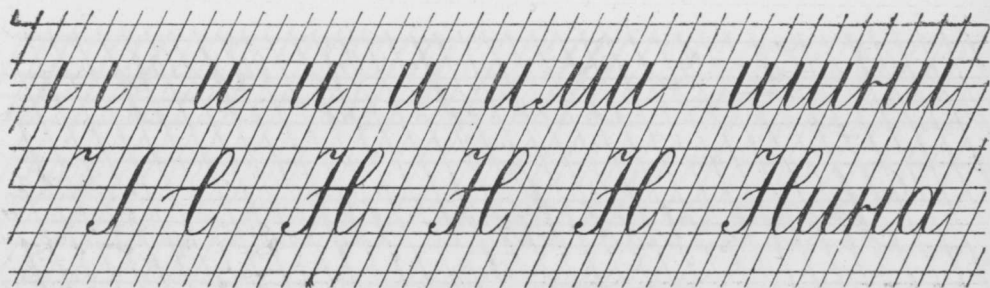 и и и или шини
Н Н Н Нина